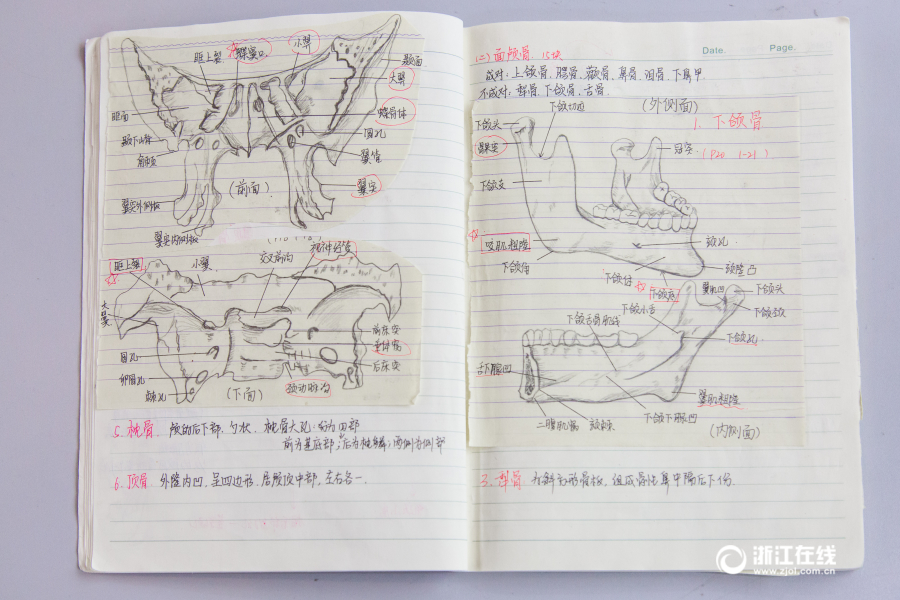 眶上裂
蝶窦口
小翼
颞面
大翼
眶面
蝶骨体
圆孔
颞下嵴
翼管
(前面)
翼突
翼突外侧板
翼突内侧板
眶上裂
小翼
交叉前沟
视神经管
大翼
前床突
垂体窝
圆孔
后床突
卵圆孔
棘孔
(下面)
颈动脉沟
5. 枕骨 颅的后下部, 勺状. 枕骨大孔: 分为四部
前为基底部; 后为枕鳞; 两侧为侧部
6. 顶骨 外隆内凹, 呈四边形. 居颅顶中部, 左右各一.
Date. Page.
(二) 面颅骨: 15块
成对: 上颌骨、腭骨、颧骨、鼻骨、泪骨、下鼻甲
不成对: 犁骨、下颌骨、舌骨
(外侧面)
1. 下颌骨
(P20 1-21)
下颌切迹
下颌头
冠突
髁突
下颌支
咬肌粗隆
颏孔
下颌角
颏隆凸
下颌体
下颌底
翼肌凹
下颌头
下颌小舌
下颌颈
下颌舌骨肌线
下颌孔
舌下腺凹
翼肌粗隆
二腹肌窝
颏棘
下颌下腺凹
(内侧面)
3. 犁骨 为斜方形骨板, 组成骨性鼻中隔后下份.
浙江在线
www.zjol.com.cn